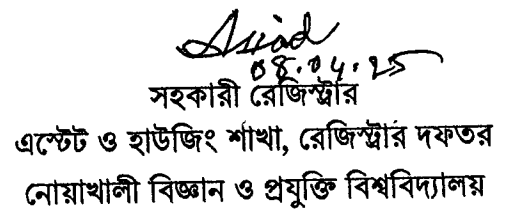 08.04.25
সহকারী রেজিস্ট্রার
এস্টেট ও হাউজিং শাখা, রেজিস্ট্রার দফতর
নোয়াখালী বিজ্ঞান ও প্রযুক্তি বিশ্ববিদ্যালয়